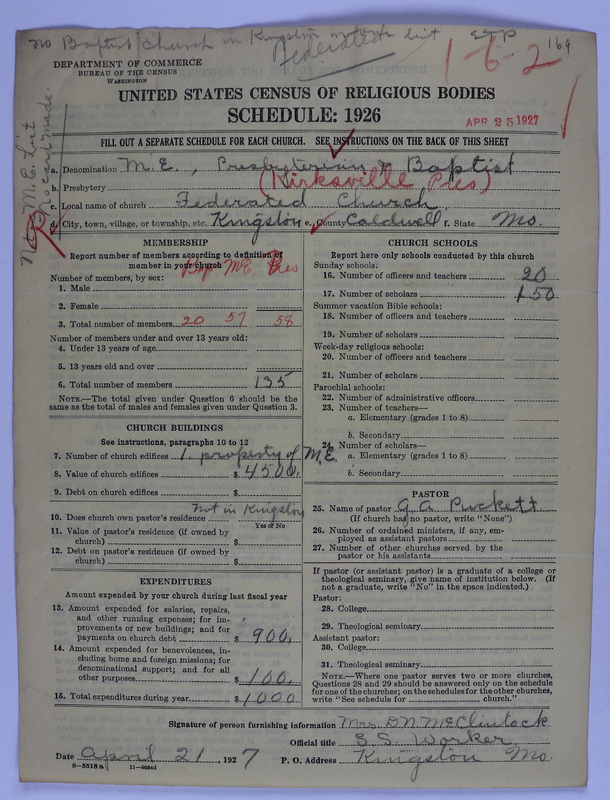 No Baptist church in Kingston in list
Federated
E.T.P
169
1-6-2
DEPARTMENT OF COMMERCE
BUREAU OF THE CENSUS
WASHINGTON
UNITED STATES CENSUS OF RELIGIOUS BODIES
SCHEDULE: 1926
APR 25 1927
FILL OUT A SEPARATE SCHEDULE FOR EACH CHURCH. SEE INSTRUCTIONS ON THE BACK OF THIS SHEET
Not M.E. List
No card made.
a. Denomination M.E., Presbyterian & Baptist
b. Presbytery (Kirksville Pres)
c. Local name of church Federated Church
d. City, town, village, or township, etc. Kingston e. County Caldwell f. State Mo.
MEMBERSHIP
Report number of members according to definition of
member in your church
Bap ME Pres
Number of members, by sex:
1. Male
2. Female
3. Total number of members 20 57 58
Number of members under and over 13 years old:
4. Under 13 years of age
5. 13 years old and over
6. Total number of members 135
NOTE.—The total given under Question 6 should be the
same as the total of males and females given under Question 3.
CHURCH BUILDINGS
See instructions, paragraphs 10 to 12
7. Number of church edifices 1. property of M.E.
8. Value of church edifices $ 4500.
9. Debt on church edifices $
Not in Kingston
10. Does church own pastor's residence
Yes or No
11. Value of pastor's residence (if owned by
church) $
12. Debt on pastor's residence (if owned by
church) $
EXPENDITURES
Amount expended by your church during last fiscal year
13. Amount expended for salaries, repairs,
and other running expenses; for im-
provements or new buildings; and for
payments on church debt $ 900.
14. Amount expended for benevolences, in-
cluding home and foreign missions; for
denominational support; and for all
other purposes $ 100.
15. Total expenditures during year $ 1000
CHURCH SCHOOLS
Report here only schools conducted by this church
Sunday schools:
16. Number of officers and teachers 20
17. Number of scholars 150
Summer vacation Bible schools:
18. Number of officers and teachers
19. Number of scholars
Week-day religious schools:
20. Number of officers and teachers
21. Number of scholars
Parochial schools:
22. Number of administrative officers
23. Number of teachers—
a. Elementary (grades 1 to 8)
b. Secondary
24. Number of scholars—
a. Elementary (grades 1 to 8)
b. Secondary
PASTOR
25. Name of pastor G.A. Puckett
(If church has no pastor, write "None")
26. Number of ordained ministers, if any, em-
ployed as assistant pastors
27. Number of other churches served by the
pastor or his assistants
If pastor (or assistant pastor) is a graduate of a college or
theological seminary, give name of institution below. (If
not a graduate, write "No" in the space indicated.)
Pastor:
28. College
29. Theological seminary
Assistant pastor:
30. College
31. Theological seminary
NOTE.—Where one pastor serves two or more churches,
Questions 28 and 29 should be answered only on the schedule
for one of the churches; on the schedules for the other churches,
write "See schedule for church."
Signature of person furnishing information Mrs. D.N. McClintock
Official title S.S. Worker
Date April 21, 1927 P. O. Address Kingston Mo.
8-5518 a